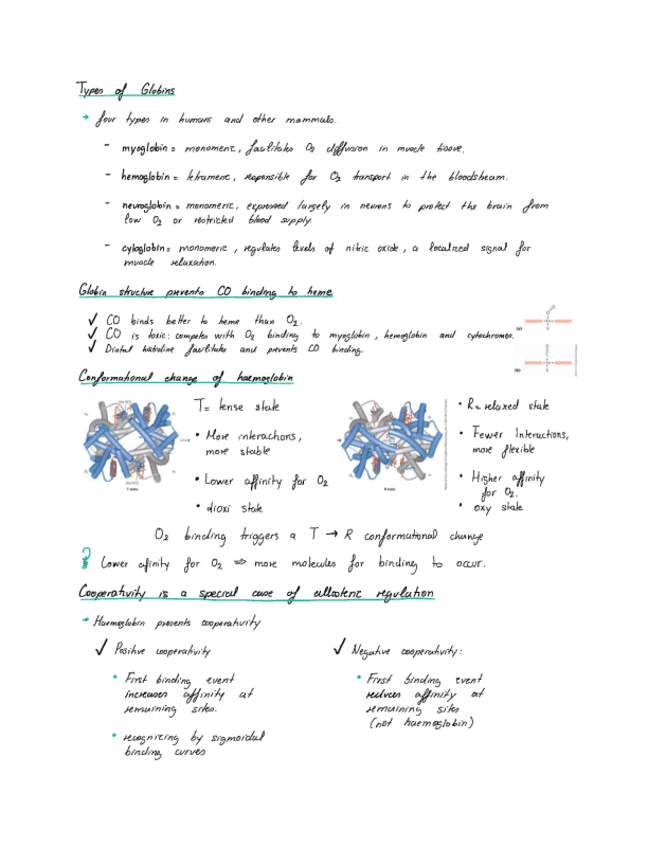 Types of Globins
→ four types in humans and other mammals.
- myoglobin = monomeric, facilitates O2 diffusion in muscle tissue.
- hemoglobin = tetrameric, responsible for O2 transport in the bloodstream.
- neuroglobin = monomeric, expressed largely in neurons to protect the brain from
low O2 or restricted blood supply.
- cytoglobin = monomeric, regulates levels of nitric oxide, a localized signal for
muscle relaxation.
Globin structure prevents CO binding to heme
✓ CO binds better to heme than O2.
✓ CO is toxic: competes with O2 binding to myoglobin, hemoglobin and cytochromes.
✓ Distal histidine facilitates and prevents CO binding.
(a)
(b)
Conformational change of haemoglobin
T = tense state
• More interactions,
more stable
• Lower affinity for O2
• dioxi state
T state
• R = relaxed state
• Fewer Interactions,
more flexible
• Higher affinity
for O2.
• oxy state
R state
O2 binding triggers a T → R conformational change
? Lower afinity for O2 ⇒ more molecules for binding to occur.
Cooperativity is a special case of allosteric regulation
→ Haemoglobin presents cooperativity
✓ Positive cooperativity
• First binding event
increases affinity at
remaining sites.
• recognizing by sigmoidal
binding curves
✓ Negative cooperativity:
• First binding event
reduces affinity at
remaining sites
(not haemoglobin)